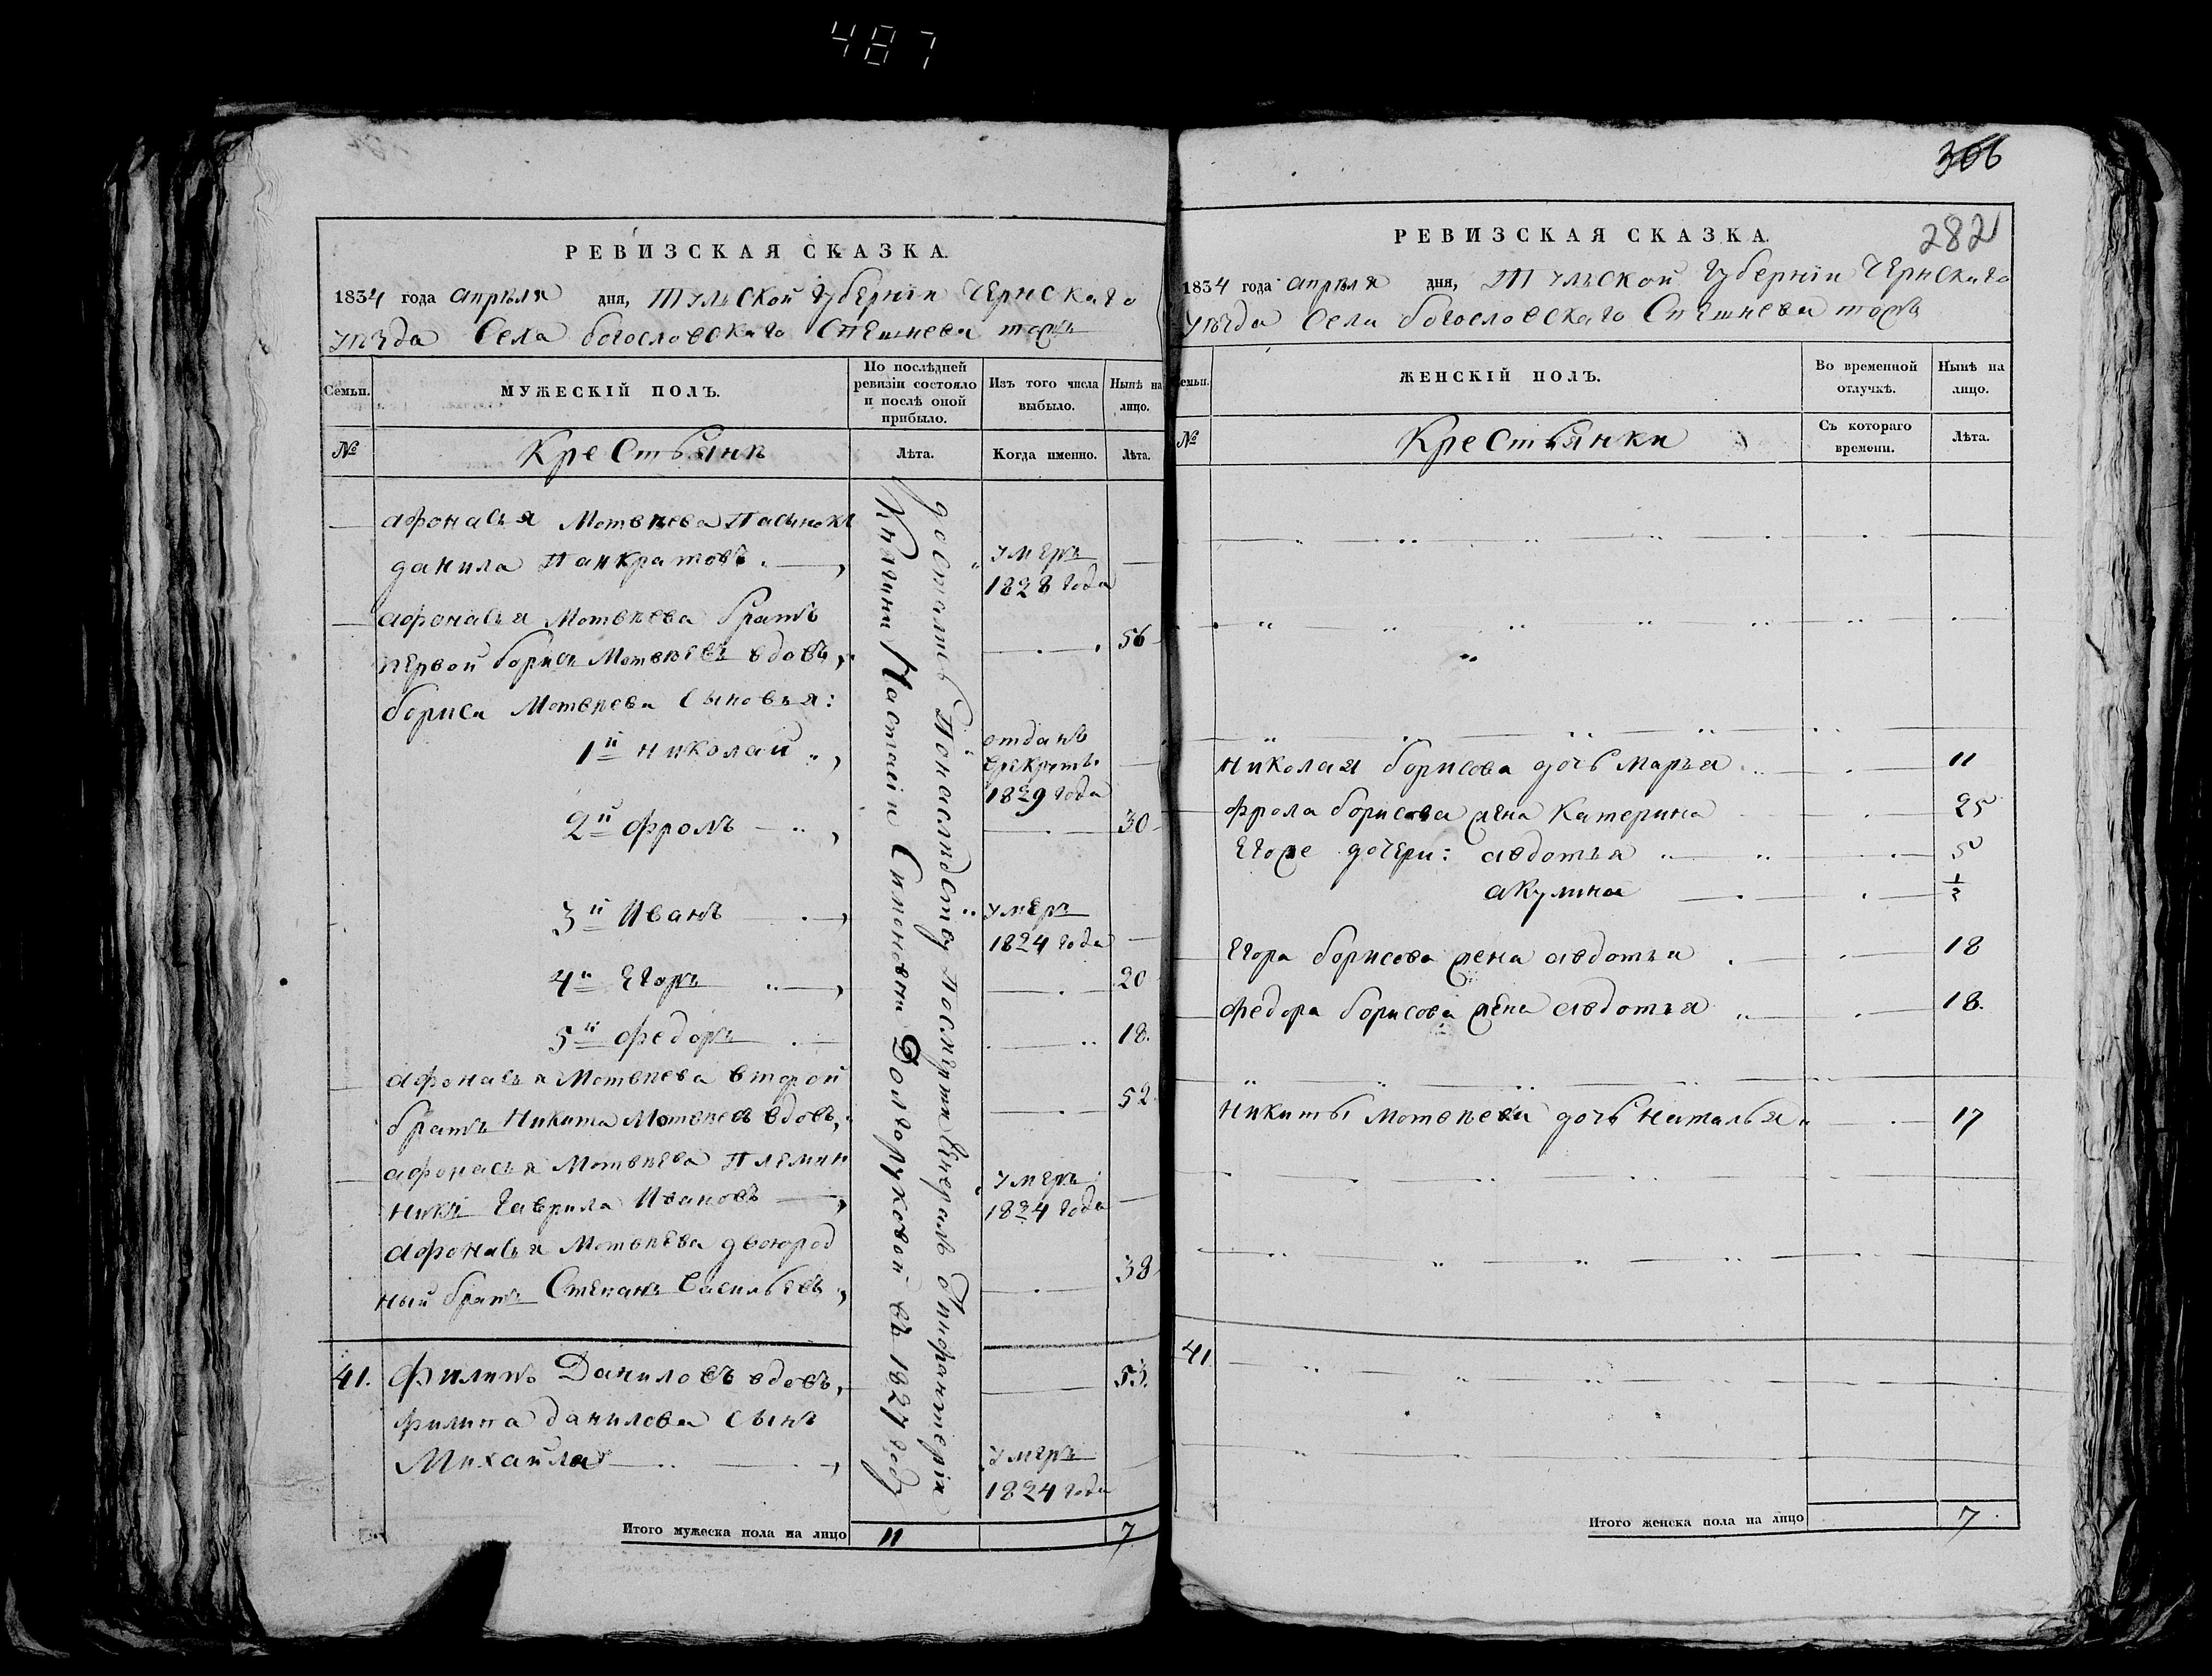 487
306
РЕВИЗСКАЯ СКАЗКА.
1834 года апреля дня, Тульской губернiи Чернскаго
уезда Села богословскаго Спешнева тожъ
Семьи.
МУЖЕСКIЙ ПОЛЪ.
По послѣдней ревизiи состояло и послѣ оной прибыло.
Изъ того числа выбыло.
Нынѣ на лицо.
№
Крестьянъ
Лѣта.
Когда именно.
Лѣта.
афонасья Мотвѣева Пасынокъ
данила Панкратовъ
умеръ
1828 года
афонасья Мотвѣева братъ
первой борисъ Мотвѣевъ вдовъ,
56
бориса Мотвѣева Сыновья:
1й николай
отданъ
врекруты
1829 года
2й фролъ
30
3й Иванъ
умеръ
1824 года
4й Егоръ
20
5й федоръ
18.
афонасья Мотвѣева второй
братъ Никита Мотвѣевъ вдовъ,
52
афонасья Мотвѣева Племян
никъ Гаврила Ивановъ
умеръ
1824 года
афонасья Мотвѣева двоюрод
ный братъ Степанъ Васильевъ,
38
41.
Филипъ Даниловъ вдовъ,
53.
филипа данилова Сынъ
Михайла
умеръ
1824 года
достались Понаследству посмерти Генералъ Отинфантерiи
Княгини Настасiи Симоновни Долгоруковой въ 1827 году
Итого мужеска пола на лицо
11
7
РЕВИЗСКАЯ СКАЗКА.
2821
1834 года апреля дня, Тульской губернiи Чернскаго
уезда Села богословскаго Спешнева тожъ
Семьи.
ЖЕНСКIЙ ПОЛЪ.
Во временной отлучкѣ.
Нынѣ на лицо.
№
Крестьянки
Съ котораго времени.
Лѣта.
Николая борисова дочь Марья
11
фрола борисова жена Катерина
25
Егоже дочери: авдотья
5
акулина
1/2
Егора борисова жена авдотья
18
федора борисова жена авдотья
18.
Никиты Мотвѣева дочь Наталья
17
41
Итого женска пола на лицо
7